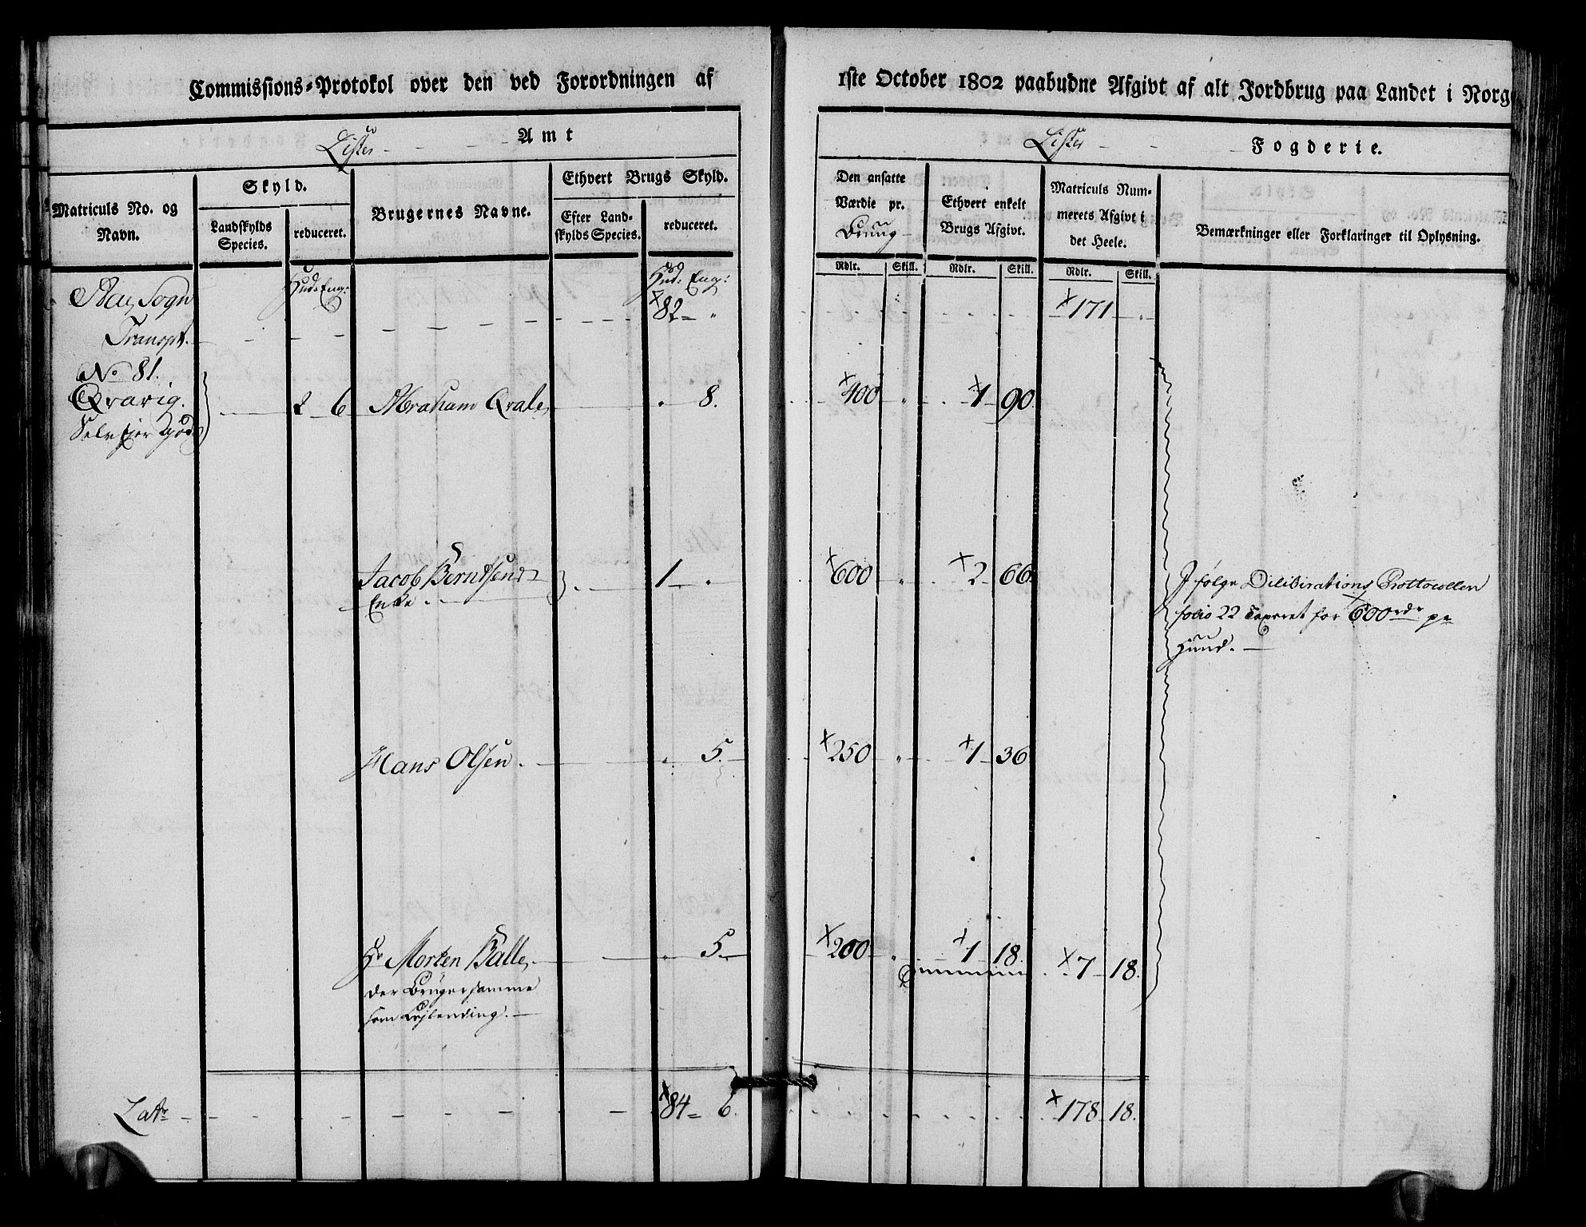 Commissions-Protokol over den ved Forordningen af 1ste October 1802 paabudne Afgivt af alt Jordbrug paa Landet i Norg
Lister Amt
Lister Fogderie.
Matriculs No. og Navn.
Skyld.
Landskylds Species.
reduceret.
Brugernes Navne.
Ethvert Brugs Skyld.
Efter Landskylds Species.
reduceret.
Den ansatte Værdie pr. Bruug
Rdlr. Skill.
Ethvert enkelt Brugs Afgivt.
Rdlr. Skill.
Matriculs Nummerets Afgivt i det Heele.
Rdlr. Skill.
Bemærkninger eller Forklaringer til Oplysning.
Sogn Hud. Eng: Hud. Eng:
Transpt. 82 „ 171
No 81.
Qvavig. 2 6 Abraham „ 8. 400 „ 1 90
Selv ejer gods
Jacob Berndsens 1 „ 600 „ 2 66
Enke
J følge Deliberations Prottocollen
folio 22 Taxeret for 600 rdr pr
Hund.
Hans Olsen. „ 5. 250 „ 1 36
Hr Morten Balle „ 5. 200 „ 1 18 7 18.
der bruger samme
som Lejlending.
Latr 84 6. 178 18.